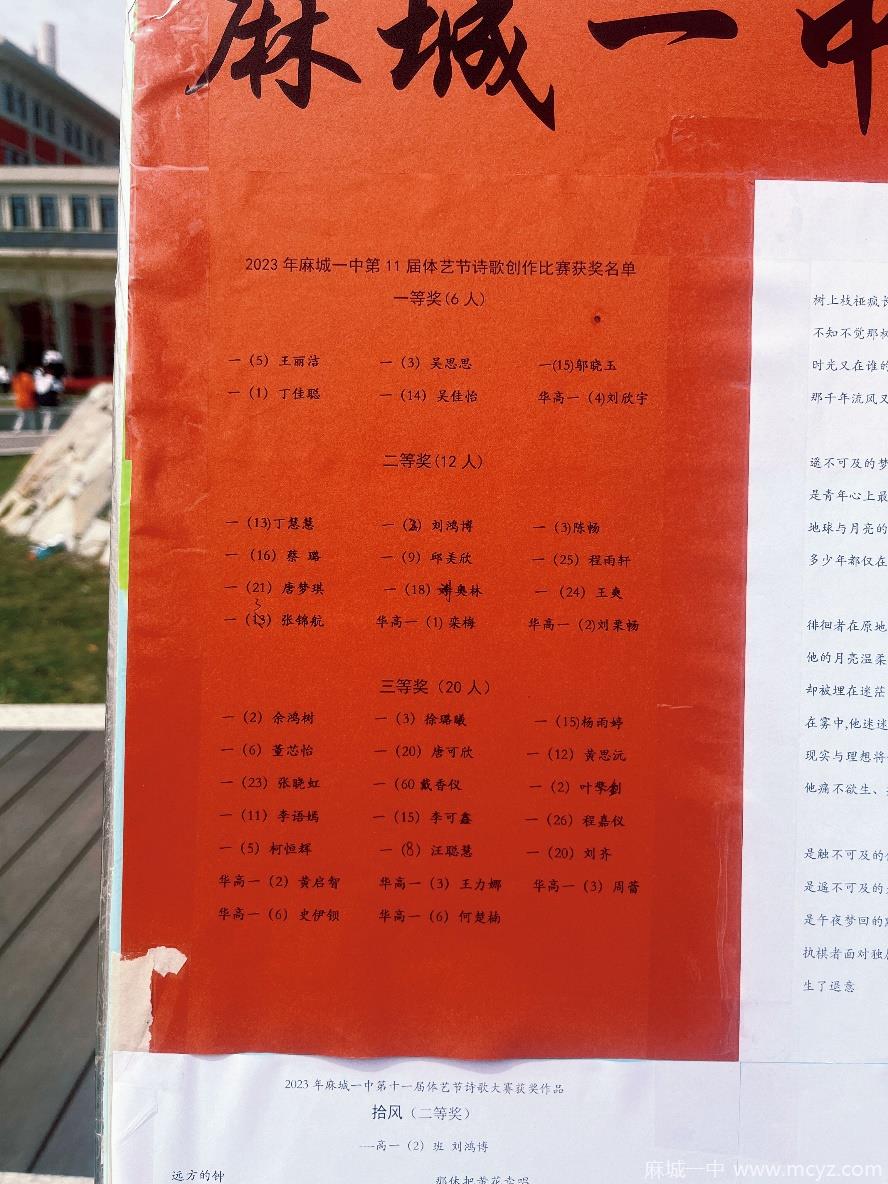 麻城一中
2023 年麻城一中第 11 届体艺节诗歌创作比赛获奖名单
一等奖(6 人)
一（5）王丽洁 一（3）吴思思 一(15)邬晓玉
一（1）丁佳聪 一（14）吴佳怡 华高一（4)刘欣宇
二等奖(12 人)
一（13)丁慧慧 一（2）刘鸿博 一（3)陈畅
一（16）蔡 璐 一（9）邱美欣 一（25）程雨轩
一（21）唐梦琪 一（18）奥林 一（24）王爽
一（13）张锦航 华高一（1）栾梅 华高一（2)刘栗畅
三等奖（20 人）
一（2）余鸿树 一（3）徐璐曦 一（15)杨雨婷
一（6）董芯怡 一（20）唐可欣 一（12）黄思沅
一（23）张晓虹 一（60 戴香仪 一（2）叶擎
一（11）李语嫣 一（15）李可鑫 一（26）程嘉仪
一（5）柯恒辉 一（8）汪聪慧 一（20）刘齐
华高一（2）黄启智 华高一（3）王力娜 华高一（3）周蕾
华高一（6）史伊钡 华高一（6）何楚楠
2023 年麻城一中第十一届体艺节诗歌大赛获奖作品
拾风（二等奖）
----高一（2）班 刘鸿博
远方的钟
树上枝桠疯长
不知不觉那树
时光又在谁的
那千年流风又
遥不可及的梦
是青年心上最
地球与月亮的
多少年都仅在
徘徊者在原地
他的月亮温柔
却被埋在迷茫
在雾中,他迷迷
现实与理想将
他痛不欲生、
是触不可及的
是遥不可及的
是午夜梦回的
执棋者面对独
生了退意
麻城一中 www.mcyz.com